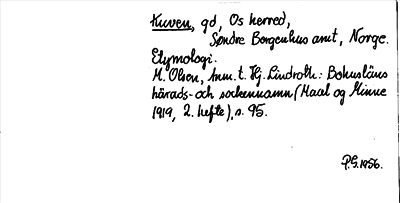 Kuven, gd, Os herred,
Søndre Bergenhus amt, Norge.
Etymologi.
M. Olsen, Anm. t. Hj. Lindroth: Bohusläns
härads- och sockennamn (Maal og Minne
1919, 2. hefte), s. 95.
P.G. 1956.